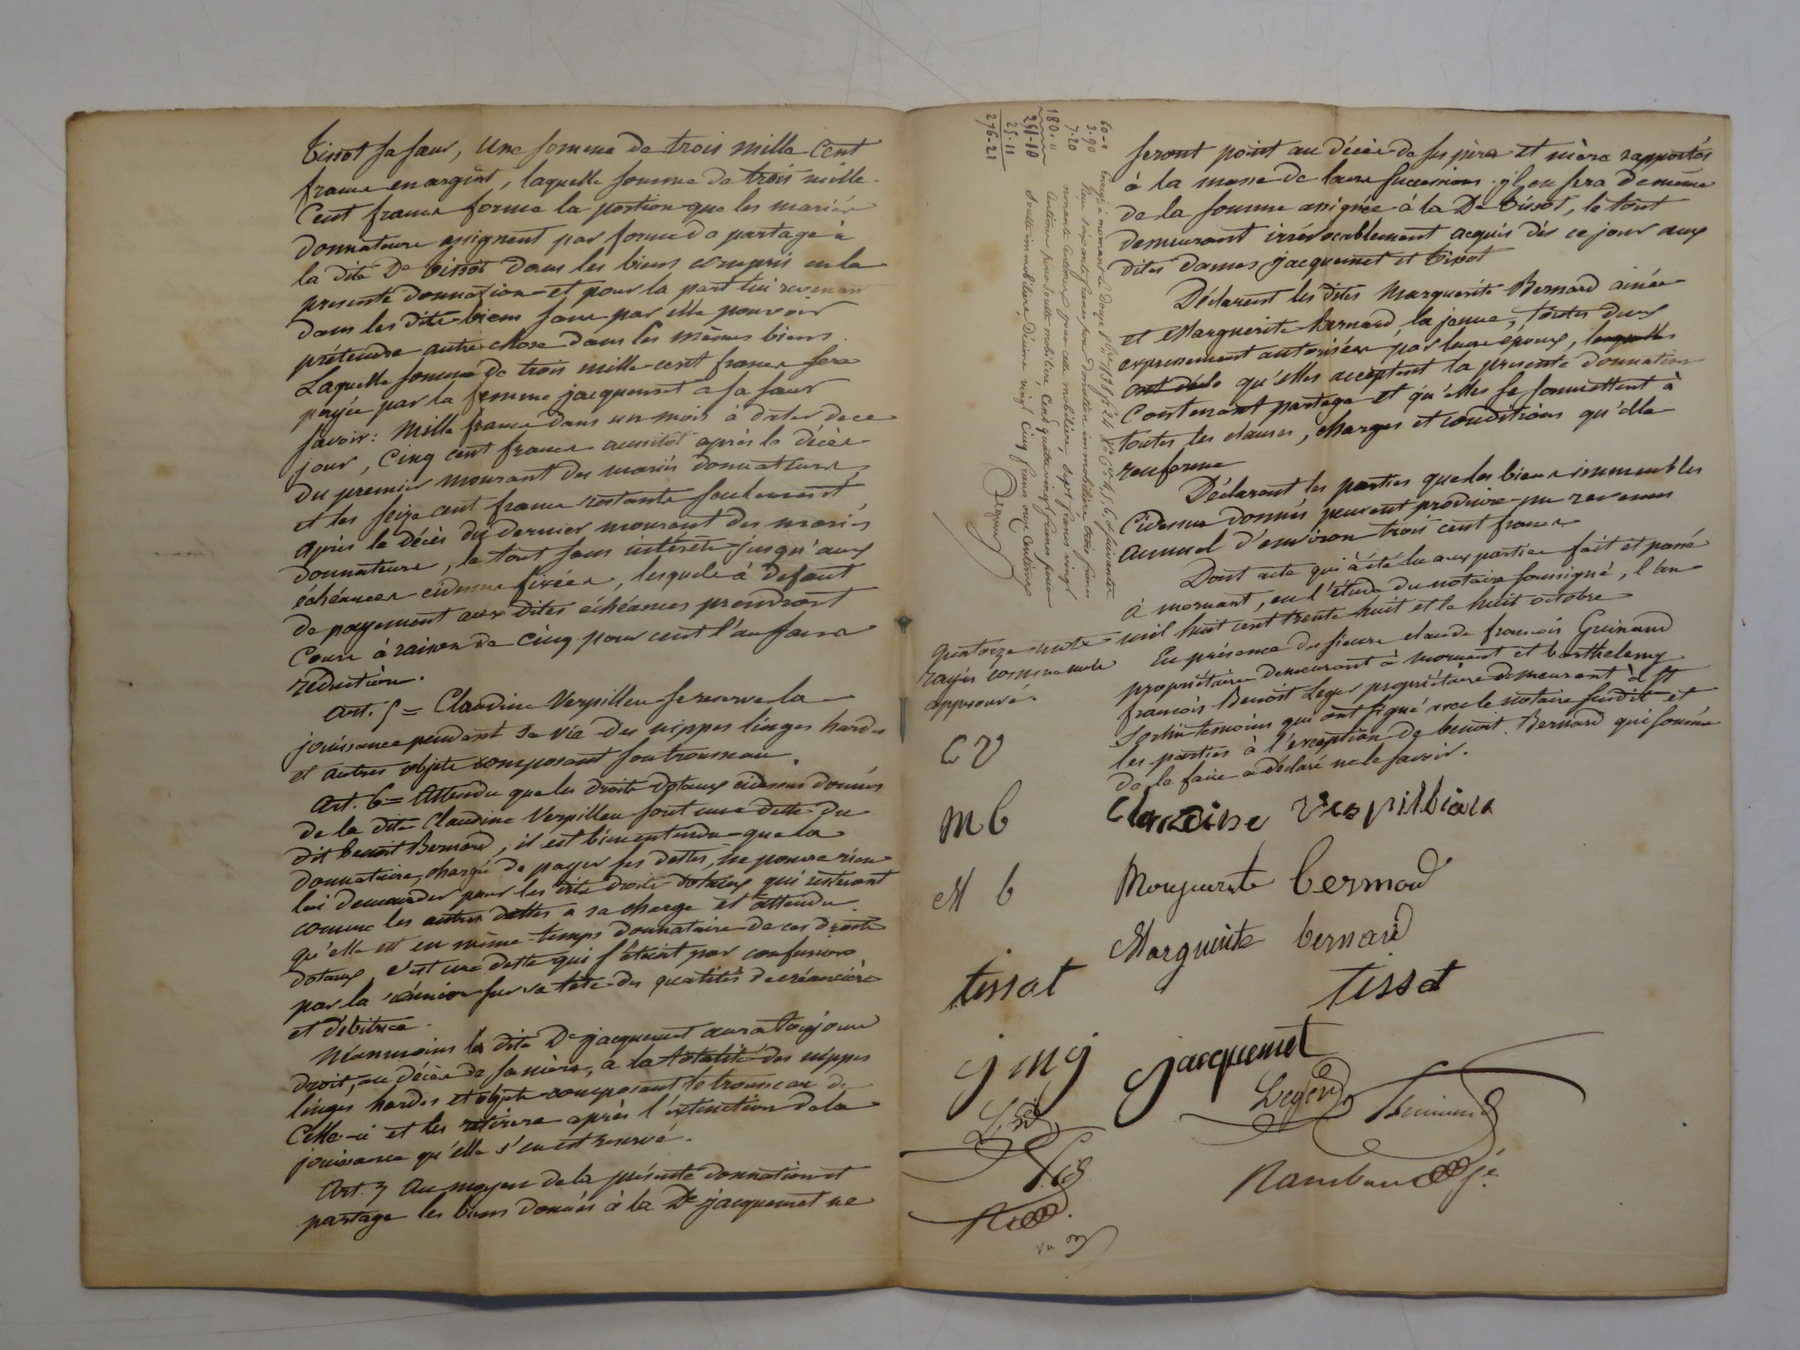 Tissot sa sœur, une somme de trois mille cent
francs en argent, laquelle somme de trois mille
cent francs forme la portion que les mariés
donnateurs assignent par forme de partage à
la dite De Tissot dans les biens compris en la
presente donnation et pour la part lui revenant
dans les dits biens sans par elle pouvoir
prétendre autre chose dans les mêmes biens.
Laquelle somme de trois mille cent francs sera
payée par la femme jacquemet a sa sœur
savoir: Mille francs dans un mois à dater de ce
jour, Cinq cent francs aussitot après le décès
du premier mourant des mariés donnateurs,
et les seize cent francs restants seulement
après le décès du dernier mourant des mariés
donnateurs, le tout sans intérêts jusqu'aux
échéances cidessus fixées, lesquels à defaut
de payement aux dites échéances prendront
cours à raison de cinq pour cent l'an sans
réduction.
Art. 5 = Claudine Verpilleu se reserve la
jouissance pendant sa vie des nippes linges hardes
et autres objets composant son trousseau.
Art. 6 = Attendu que les droits dotaux cidessus donnés
de la dite Claudine Verpilleu sont une dette du
dit Benoit Bernard, il est bien entendu que la
donnataire, chargée de payer ses dettes, ne pourra rien
lui demander pour les dits droits dotaux qui resteront
comme les autres dettes a sa charge et attendu
qu'elle est en même temps donnataire de ces droits
dotaux, c'est une dette qui s'éteint par confusion
par la réunion sur sa tête des qualités de créancière
et débitrice.
Néanmoins la dite De jacquemet aura toujours
droit, au décès de sa mère, a la totalité des nippes
linges hardes et objets composant le trousseau de
celle-ci et les retirera après l'extinction de la
jouissance qu'elle s'en est reservé.
Art. 7 Au moyen de la présente donnation et
partage les biens donnés à la De jacquemet ne
seront point au décès de ses père et mère rapportés
à la masse de leurs successions. il en sera de même
de la somme assignée à la De Tissot, le tout
demeurant irrévocablement acquis dès ce jour aux
dites dames jacquemet et Tissot
Déclarent les dites Marguerite Bernard ainée
et Marguerite Bernard la jeune, toutes deux
expressement autorisées par leurs époux, lesquelles
ont déclé qu'elles acceptent la presente donnation
contenant partage et qu'elles se soumettent à
toutes les clauses, charges et conditions qu'elle
renferme
Déclarent les parties que les biens immeubles
cidessus donnés peuvent produire un revenus
annuel d'environ trois cent francs
Dont acte qui a été lu aux parties fait et passé
à mornant, en l'étude du notaire soussigné, l'an
mil huit cent trente huit et le huit octobre
En présence des sieurs claude françois Guinand
propriétaire demeurant à mornant et barthelemy
françois Benoit Leger propriétaire demeurant à St
Sorlin temoins qui ont signé avec le notaire susdit et
les parties à l'exception de benoit Bernard qui sommé
de le faire a déclaré ne le savoir.
quatorze mots
rayés comme nuls
approuvé.
60-"
3-90
7-20
180-"
251-10
25-11
276-21
Reçu soixante francs pour donation immobilière, trois francs
nonante centimes pour celle mobilière, sept francs vingt
centimes pour soulte mobilière, cent quatre vingt francs pour
soulte immobilière, décime vingt cinq francs onze centimes
CV
MB
M b
tissot
jmj
Claudine Verpillieux
Marguerite bernard
Marguerite bernard
tissot
jacquemet
Leger
Guinand
Rambaud
vu